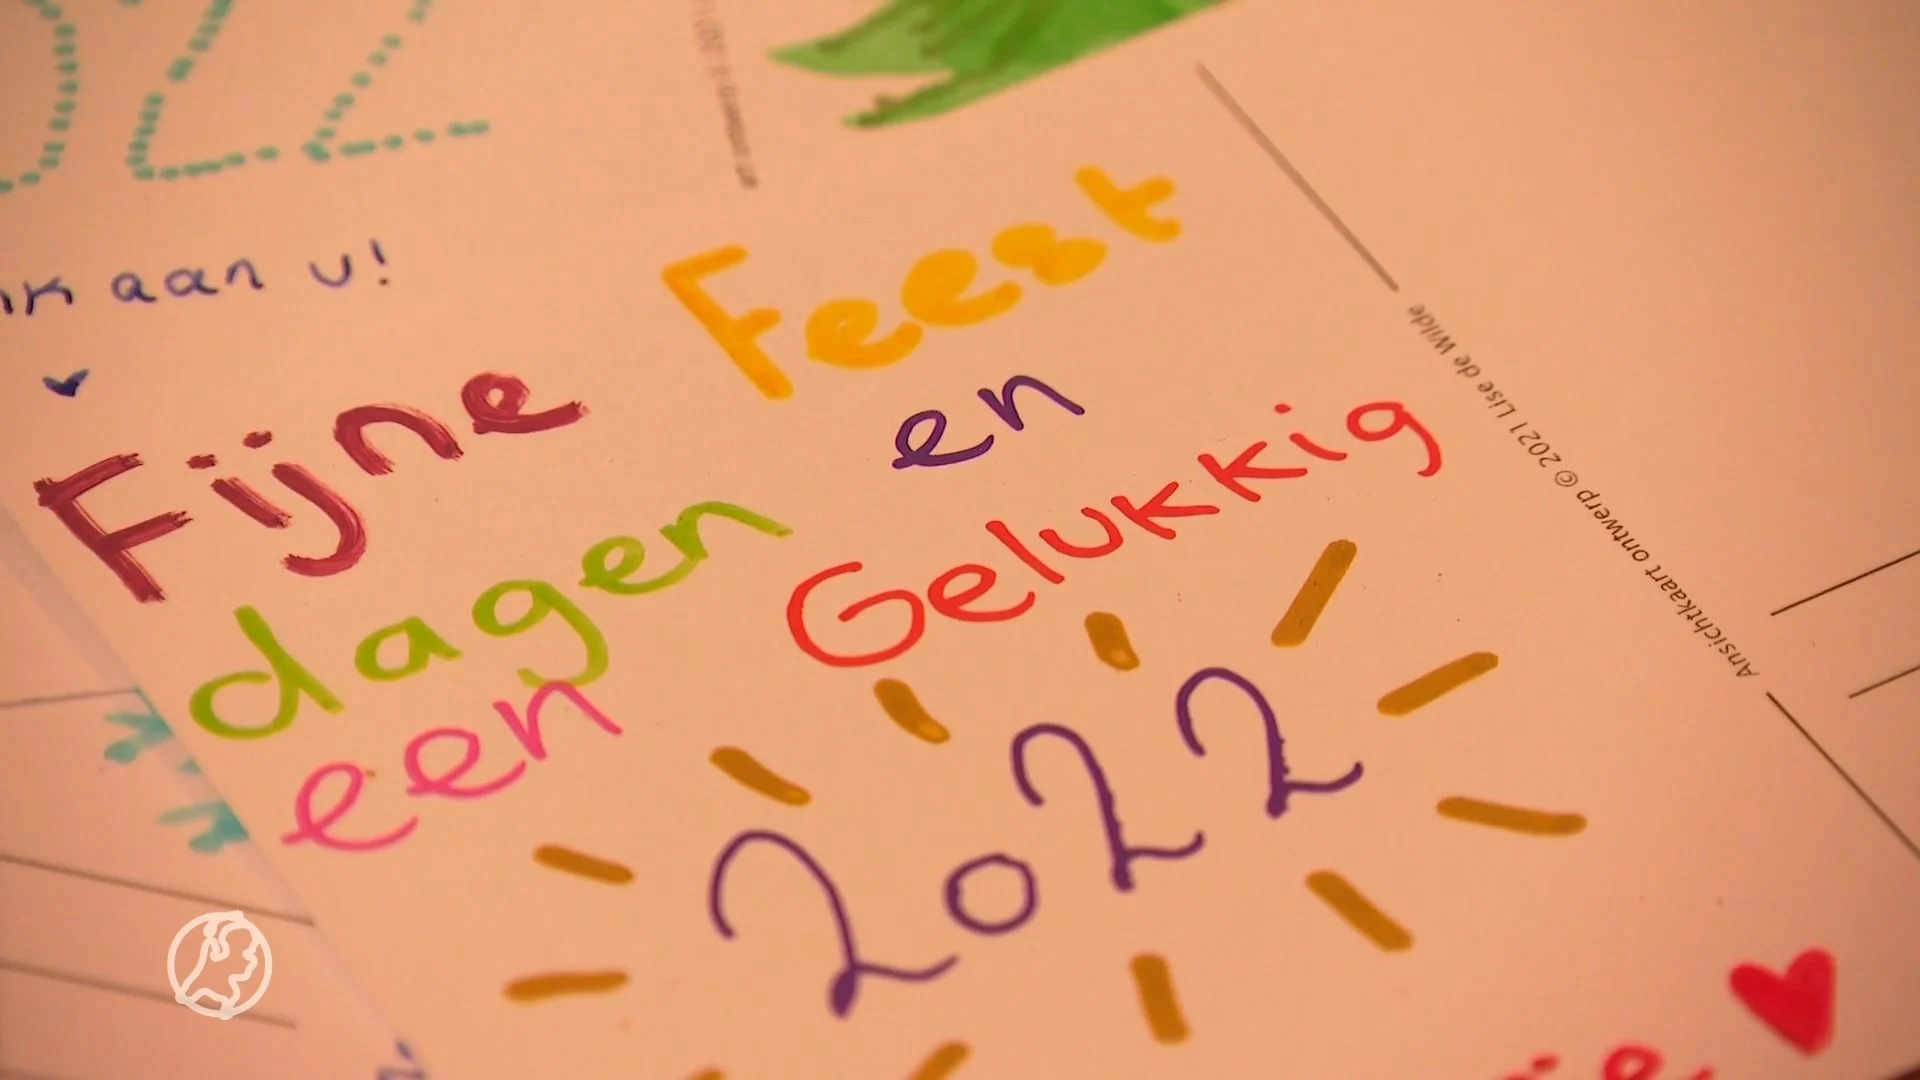 aan u!
Fijne Feest
dagen en
een Gelukkig
2022
Ansichtkaart ontwerp © 2021 Lise de Wilde